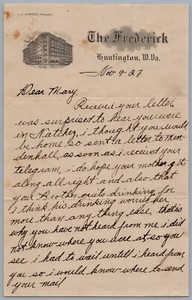 The Frederick
Huntington, W.Va.
Nov 9-27
Dear Mary,
Received your letter
was surprised to hear you were
in Natchez, i thought you would
be home so sent a letter to Men-
denhall, as soon as i received your
telegram, i do hope your mother get
along all right and also that
your Brother quits drinking for
i think his drinking worries her
more than any thing else, that is
why you have not heard from me i did
not know where you were at so you
see i had to wait until i heard from
you so i would know where to send
your mail